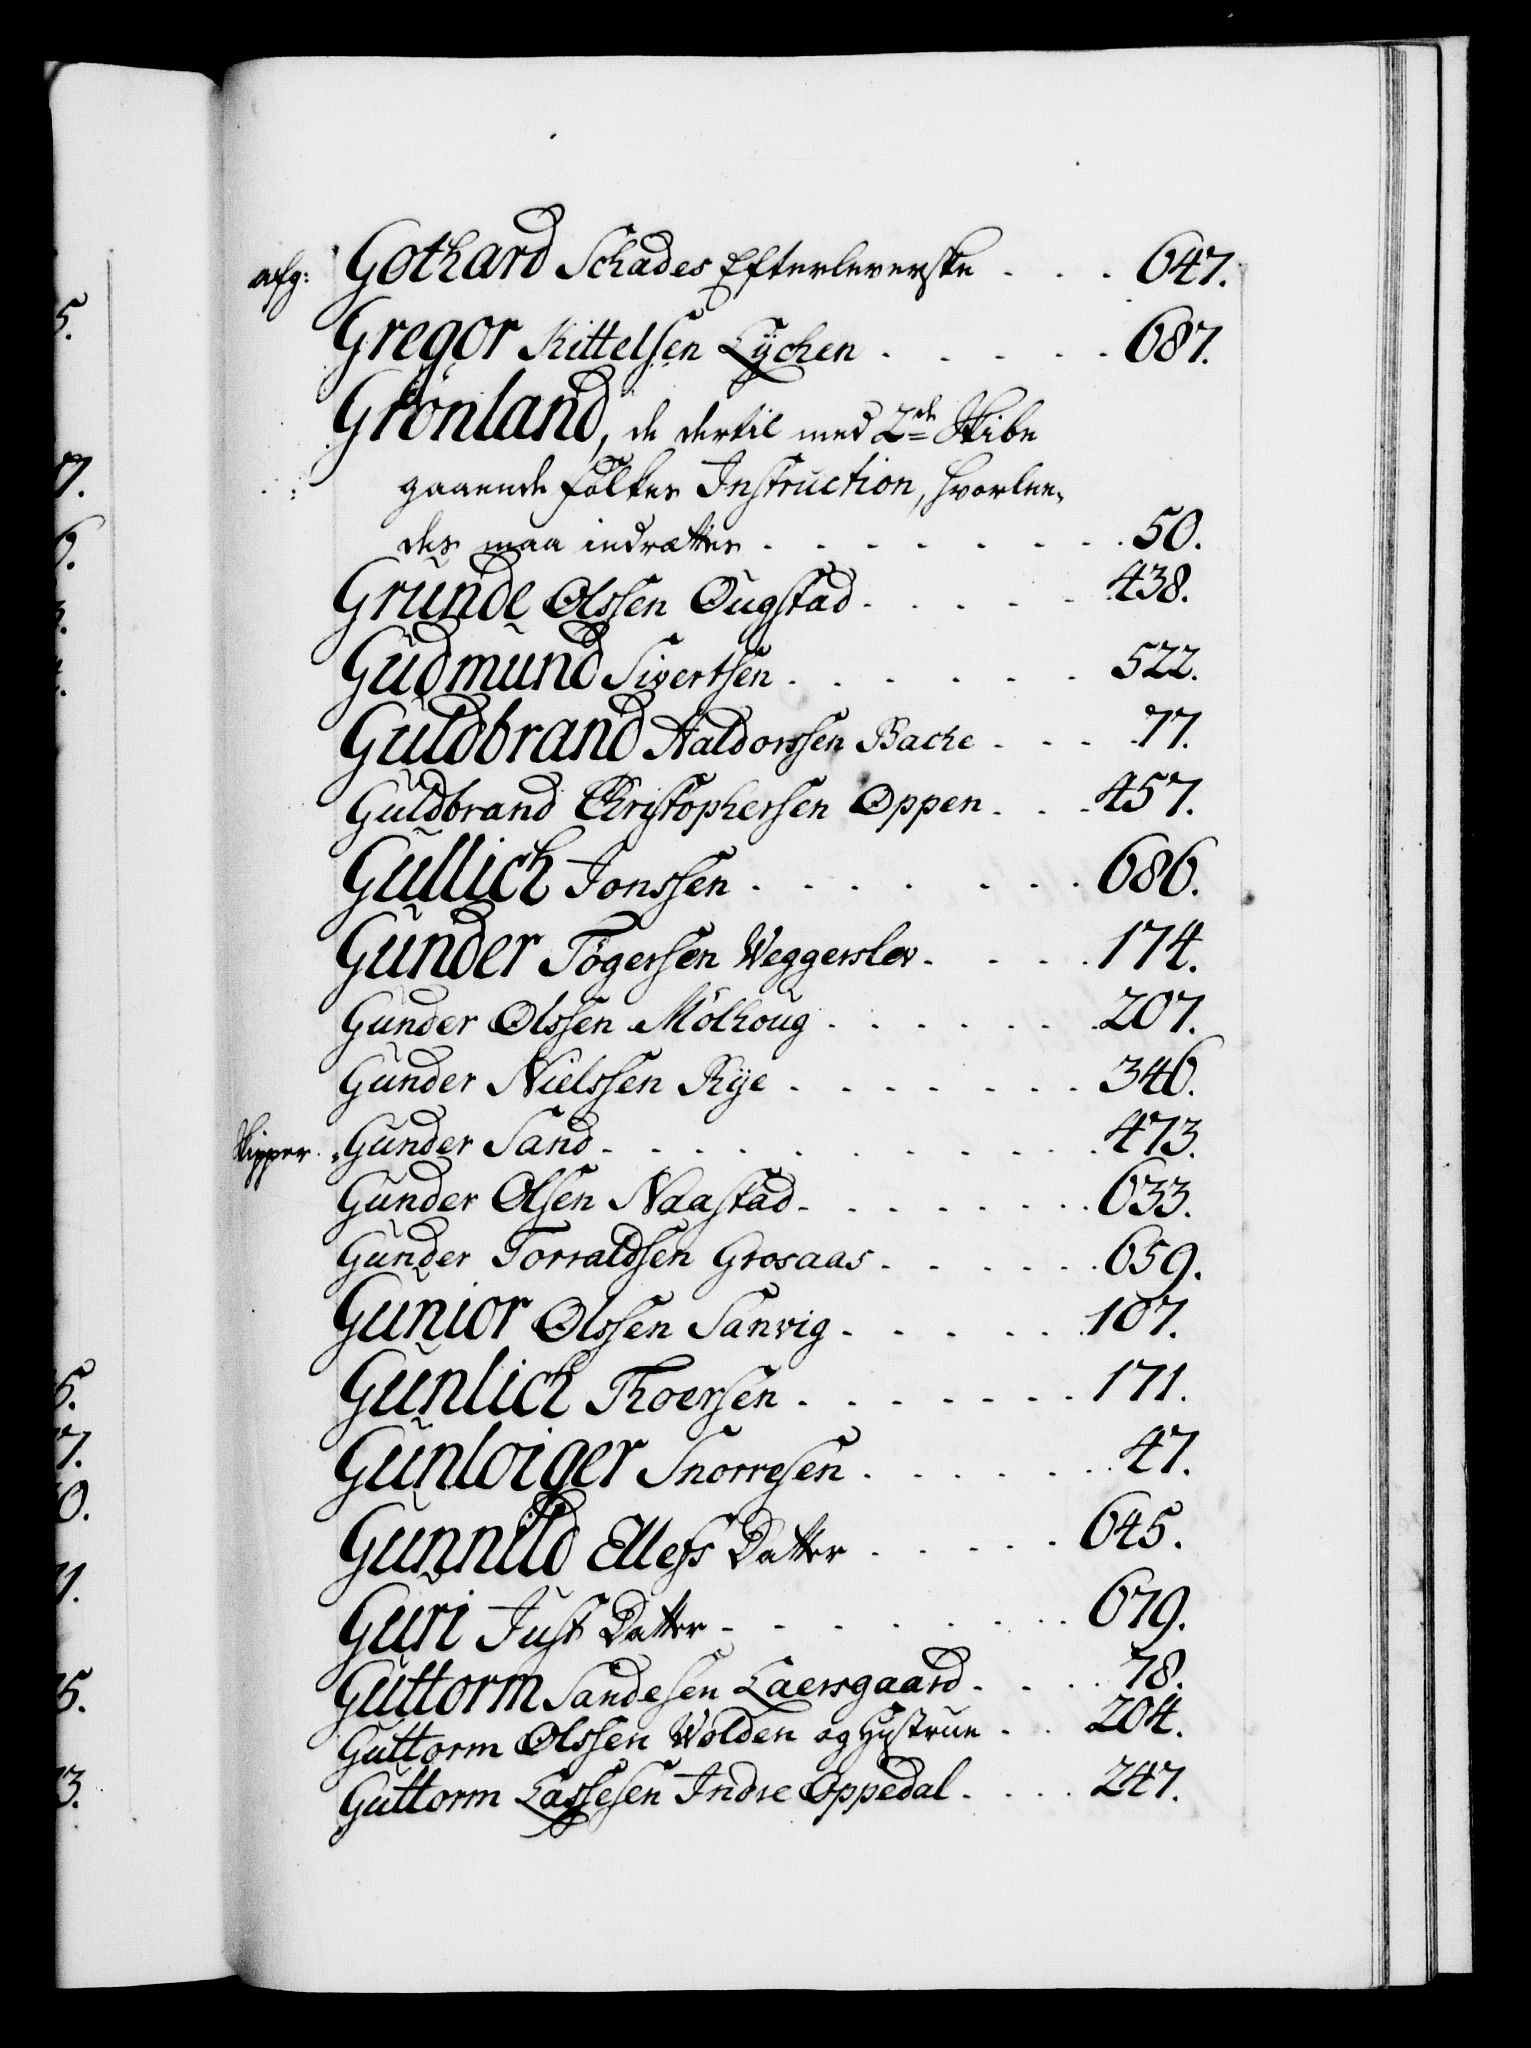 afg: Gothard Schades Efterleverske . . . 647.
Gregor Kittelsen Lÿchen . . . . . 687.
Grönland, de dertil med 2de Skibe
gaaende Folkes Instruction, hvorlee-
des maa indrættes . . . . . . . . 50.
Grunde Olssen Ougstad . . . . . 438.
Gudmund Sivertsen . . . . . . 522.
Guldbrand Haldorssen Bache . . . . 77.
Guldbrand Christophersen Oppen . . . 457.
Gullich Jonssen . . . . . . . 686.
Gunder Tögersen Weggerslev . . . . 174.
Gunder Olssen Mölhoug . . . . . . 207.
Gunder Nielssen Rÿe . . . . . . . 346.
Skipper. Gunder Sand . . . . . . . . . . . 473.
Gunder Olsen Naastad . . . . . . . 633.
Gunder Torraldsen Grosaas . . . . . . 659.
Gunior Olssen Sanvig . . . . . . 107.
Gunlich Thoersen . . . . . . . 171.
Gunloiger Snorresen . . . . . . 47.
Gunnild Ellefs Datter . . . . . 645.
Guri Just Datter . . . . . . . 679.
Guttorm Sandesen Laersgaard . . . . 78.
Guttorm Olssen Wolden og Hustrue . . 204.
Guttorm Lassesen Indre Oppedal . . . . 247.